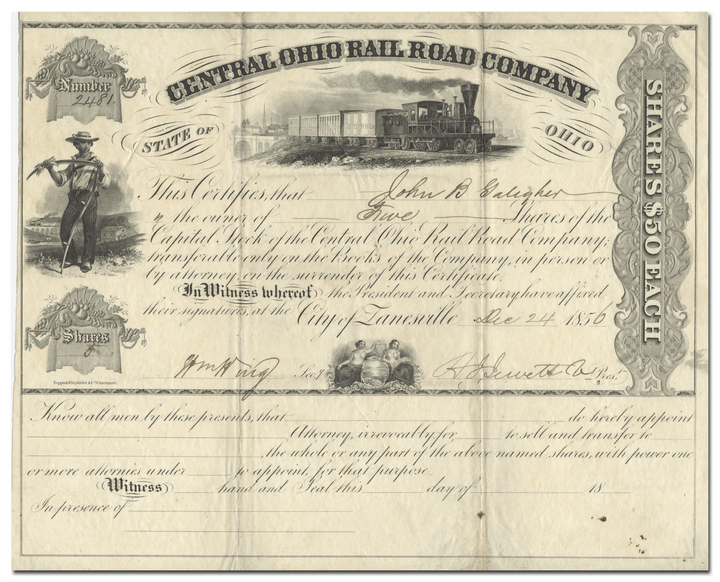 CENTRAL OHIO RAIL ROAD COMPANY
Number
2481.
STATE OF OHIO
SHARES $50 EACH
This Certifies, that John B Galigher
is the owner of Five Shares of the
Capital Stock of the Central Ohio Rail Road Company;
transferable only on the Books of the Company, in person or
by attorney, on the surrender of this Certificate.
In Witness whereof the President and Secretary have affixed
their signatures, at the City of Zanesville Dec 24 1856
Shares
5
Wm Wing Secy. H J Jewett Prest.
Know all men by these presents, that do hereby appoint
Attorney, irrevocably for to sell and transfer to
the whole or any part of the above named shares, with power one
or more attornies under to appoint, for that purpose
Witness hand and Seal this day of 18
In presence of